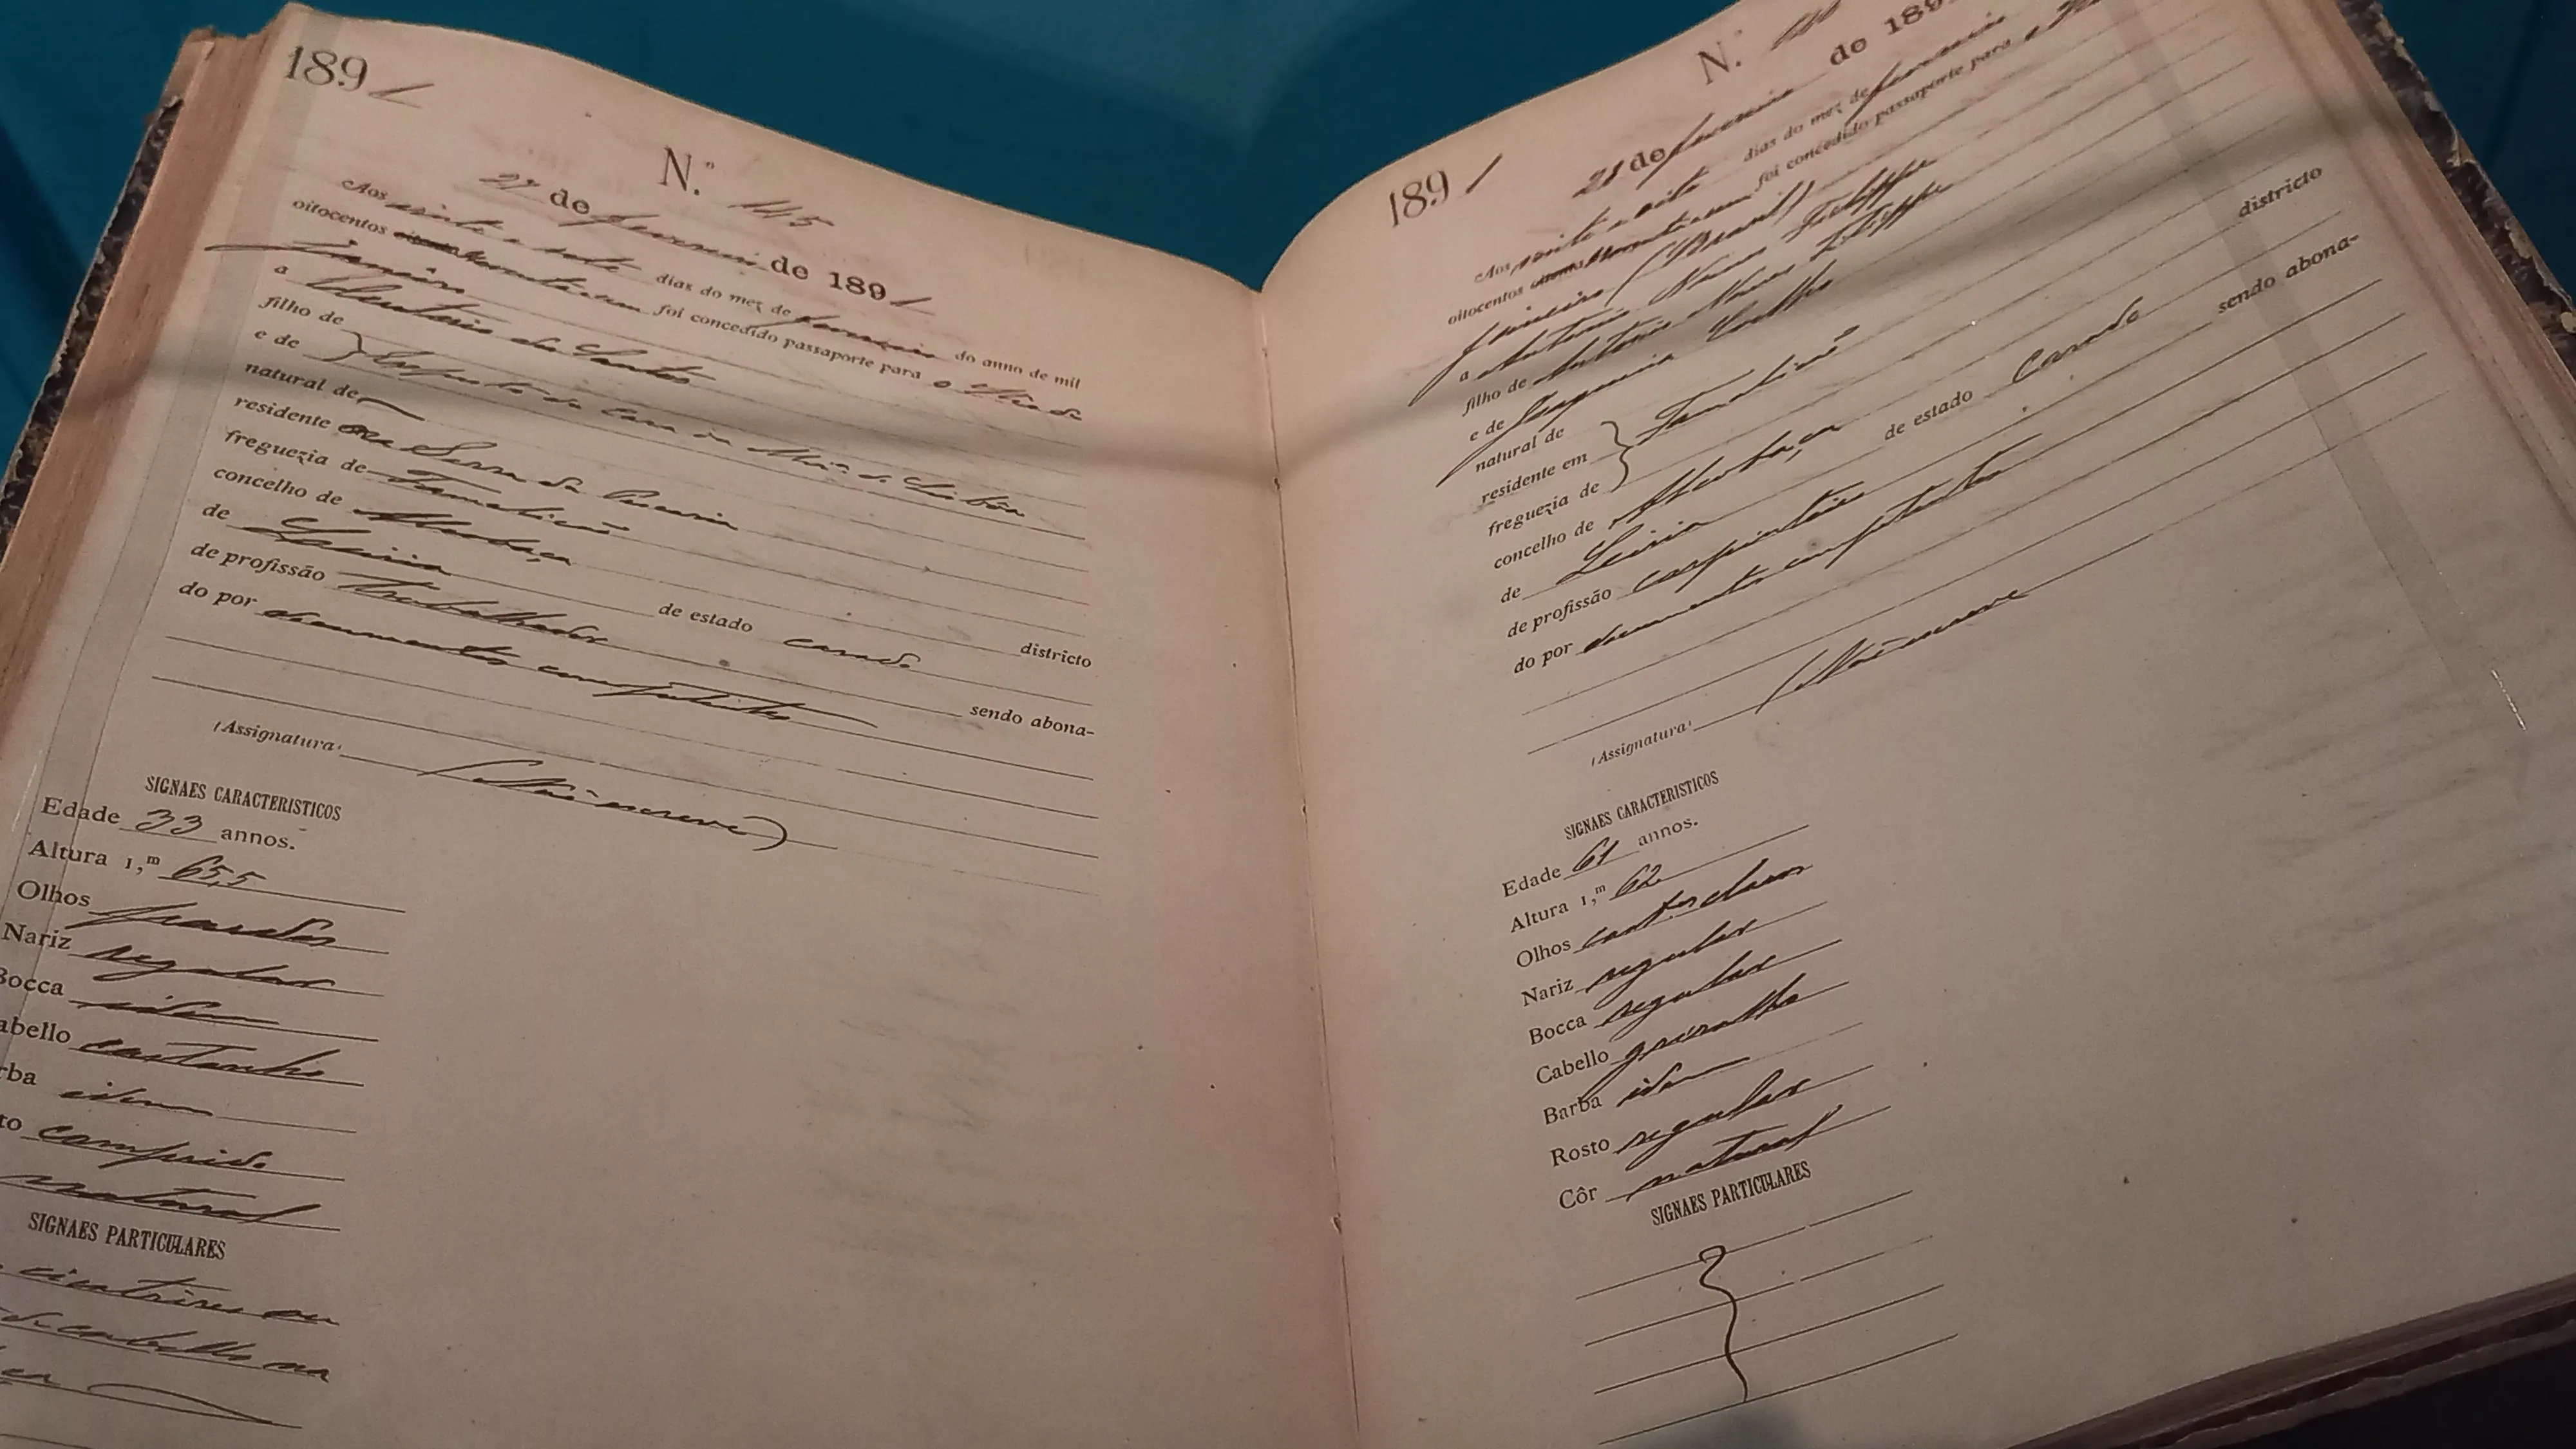 1891
N.º 145
27 de fevereiro de 1891
Aos vinte e sete dias do mez de fevereiro do anno de mil
oitocentos noventa e um foi concedido passaporte para o Rio de
Janeiro
a Eleuterio dos Santos
filho de
e de } Exposto da Casa da Miz.ª de Lisbôa
natural de
residente na Serra da Pescaria
freguezia de Famalicão
concelho de Alcobaça districto
de Leiria de estado casado
de profissão trabalhador sendo abona-
do por documentos competentes
(Assignatura) (Não escreve)
SIGNAES CARACTERISTICOS
Edade 33 annos.
Altura 1,m 65,5
Olhos pardos
Nariz regular
Bocca idem
abello castanho
rba idem
to comprido
natural
SIGNAES PARTICULARES
cicatrizes ou
de cabello na
1891
N.º
28 de fevereiro de 189
Aos vinte e oito dias do mez de fevereiro
oitocentos noventa e um foi concedido passaporte para o
Janeiro (Brasil)
a Antonio Nunes Filippe
filho de Antonio Nunes Filippe
e de Joaquina Coelho
natural de
residente em } Famalicão
freguezia de
concelho de Alcobaça districto
de Leiria de estado Casado
de profissão carpinteiro sendo abona-
do por documentos competentes
(Assignatura) (Não escreve
SIGNAES CARACTERISTICOS
Edade 61 annos.
Altura 1,m 62
Olhos cast.os claros
Nariz regular
Bocca regular
Cabello grisalho
Barba idem
Rosto regular
Côr natural
SIGNAES PARTICULARES